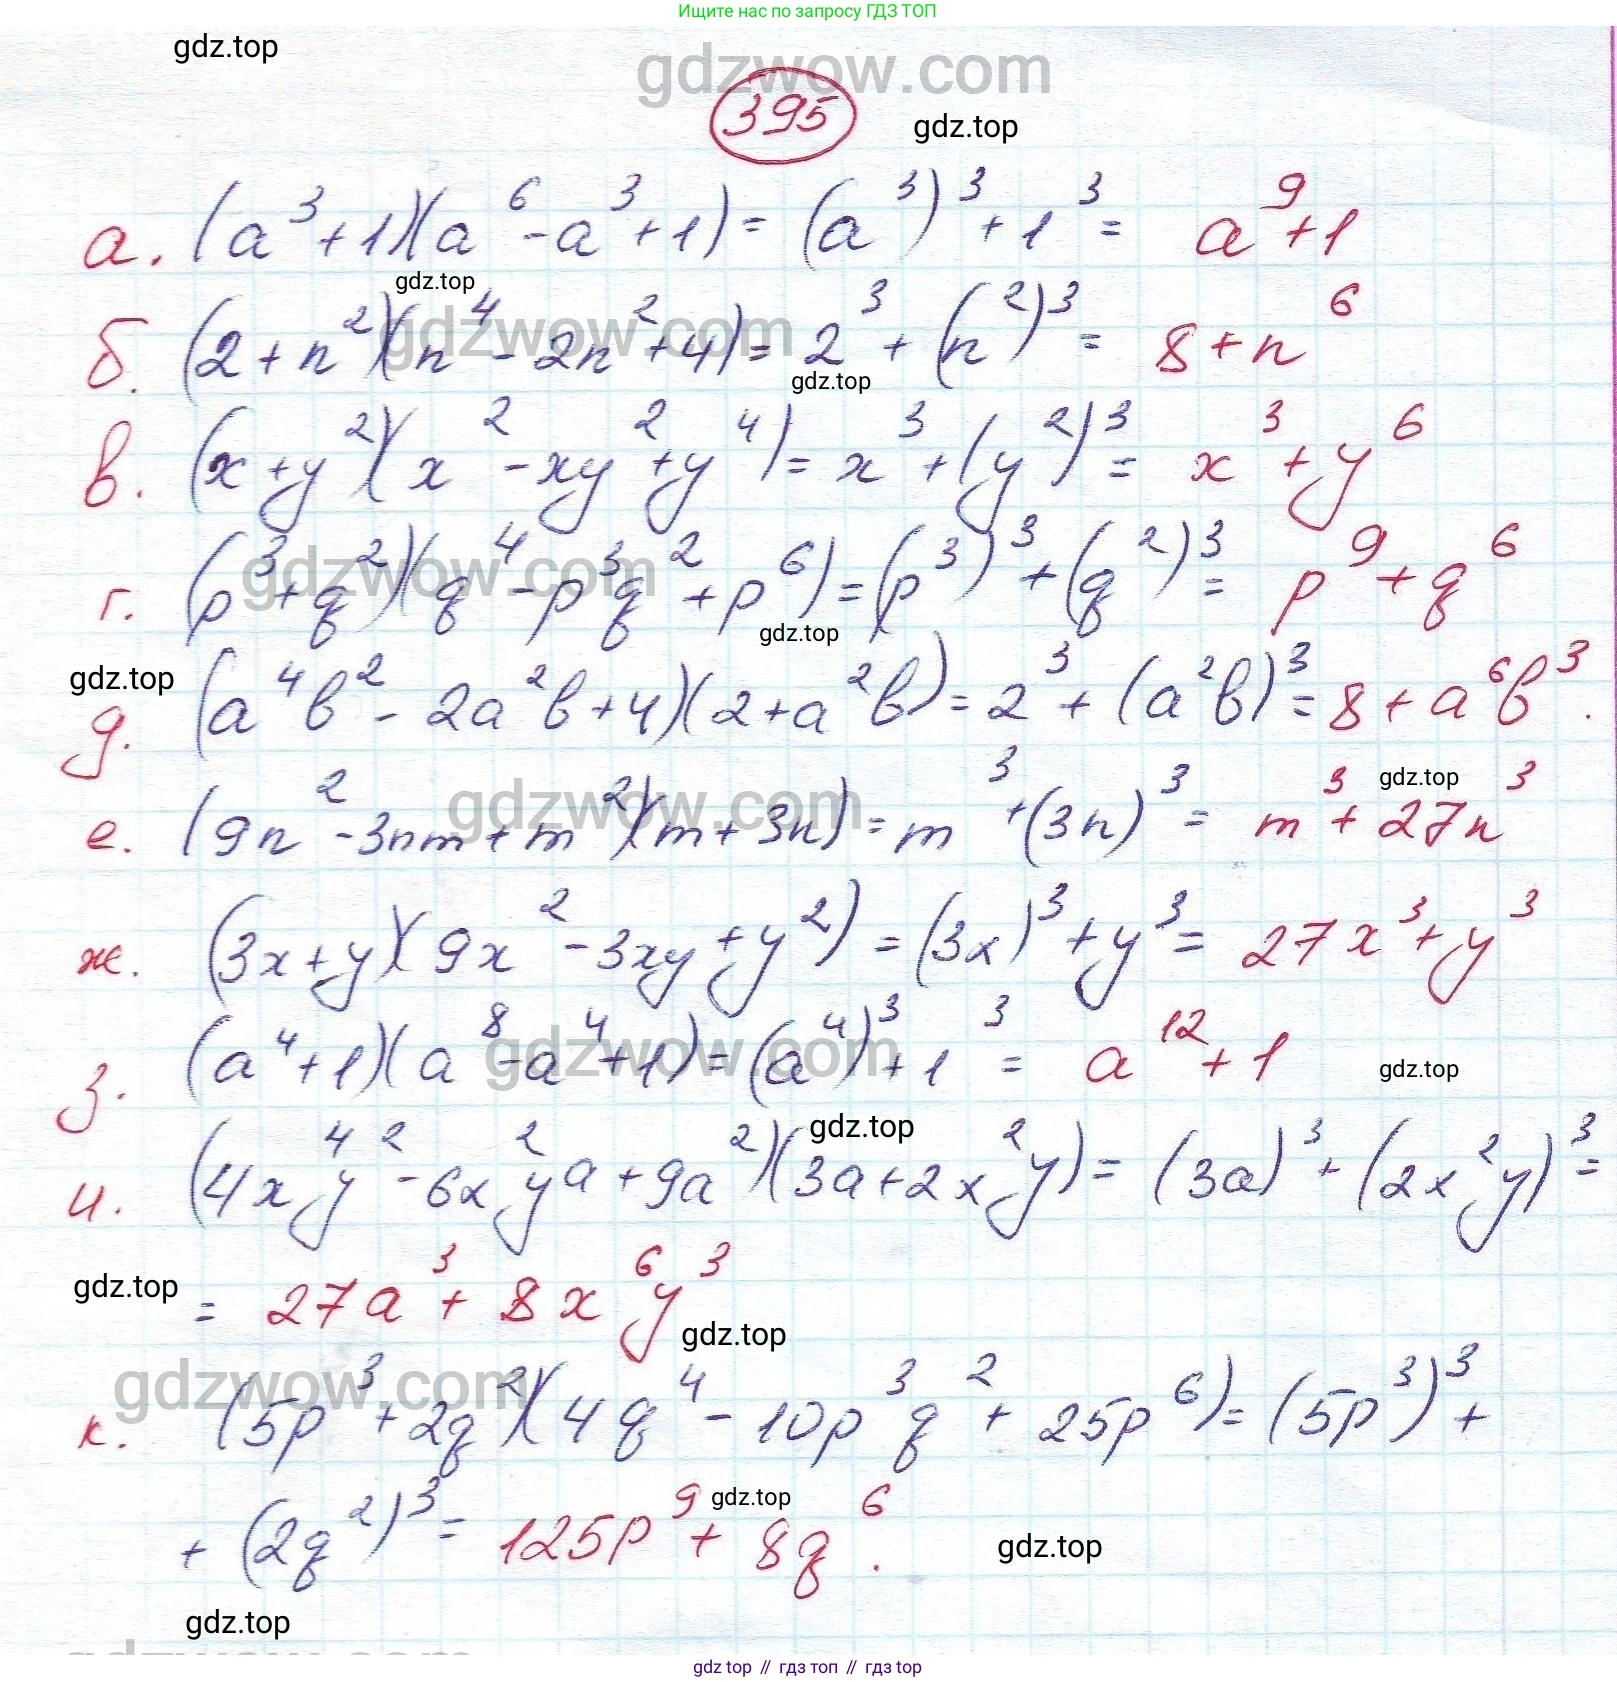 Ищите нас по запросу ГДЗ ТОП
gdz.top
gdzwow.com
395
gdz.top
а. (a³+1)(a⁶-a³+1)=(a³)³+1³= a⁹+1
gdz.top
gdzwow.com
б. (2+n²)(n⁴-2n²+4)=2³+(n²)³= 8+n⁶
gdz.top
в. (x+y²)(x²-xy²+y⁴)=x³+(y²)³= x³+y⁶
gdzwow.com
г. (p³+q²)(q⁴-p³q²+p⁶)=(p³)³+(q²)³= p⁹+q⁶
gdz.top
gdz.top
д. (a⁴b²-2a²b+4)(2+a²b)=2³+(a²b)³=8+a⁶b³.
gdz.top
gdzwow.com
е. (9n²-3nm+m²)(m+3n)=m³+(3n)³= m³+27n³
ж. (3x+y)(9x²-3xy+y²)=(3x)³+y³= 27x³+y³
gdzwow.com
з. (a⁴+1)(a⁸-a⁴+1)=(a⁴)³+1³= a¹²+1
gdz.top
gdz.top
и. (4x⁴y²-6x²ya+9a²)(3a+2x²y)=(3a)³+(2x²y)³=
gdz.top
= 27a³+8x⁶y³
gdz.top
gdzwow.com
к. (5p³+2q²)(4q⁴-10p³q²+25p⁶)=(5p³)³+
gdz.top
+(2q²)³= 125p⁹+8q⁶.
gdz.top
gdz.top
gdzwow.com
gdz top // гдз топ // гдз top